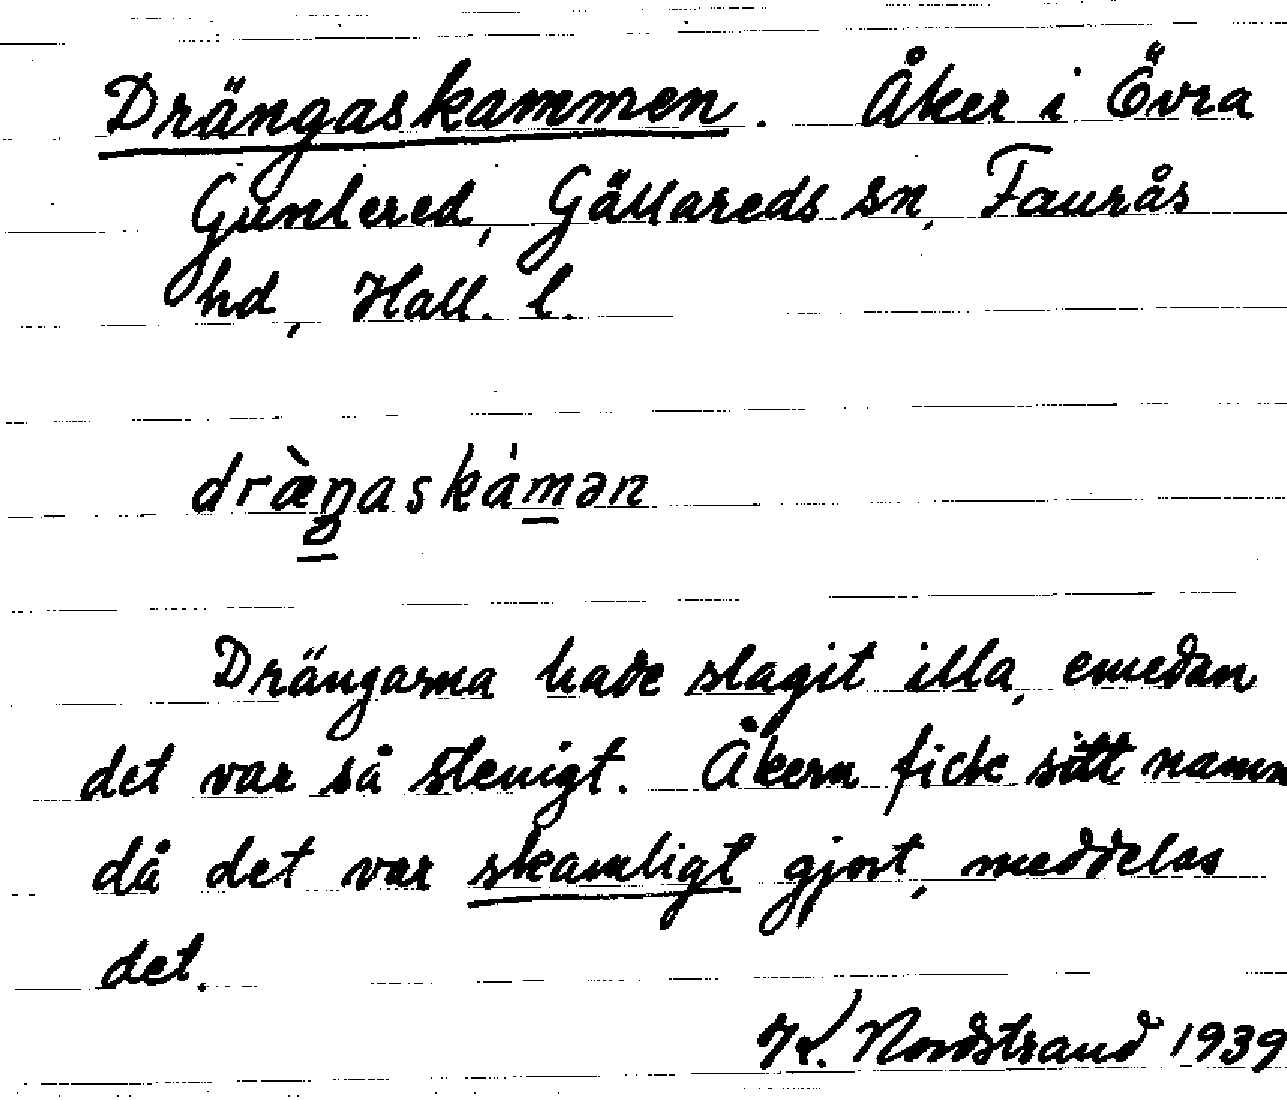 Drängaskammen. Åker i Övra
Gunlered, Gällareds sn, Faurås
hd, Hall. l.
dræ̀ŋaskámən
Drängarna hade slagit illa, emedan
det var så stenigt. Åkern fick sitt namn
då det var skamligt gjort, meddelas
det.
Nordstrand 1939